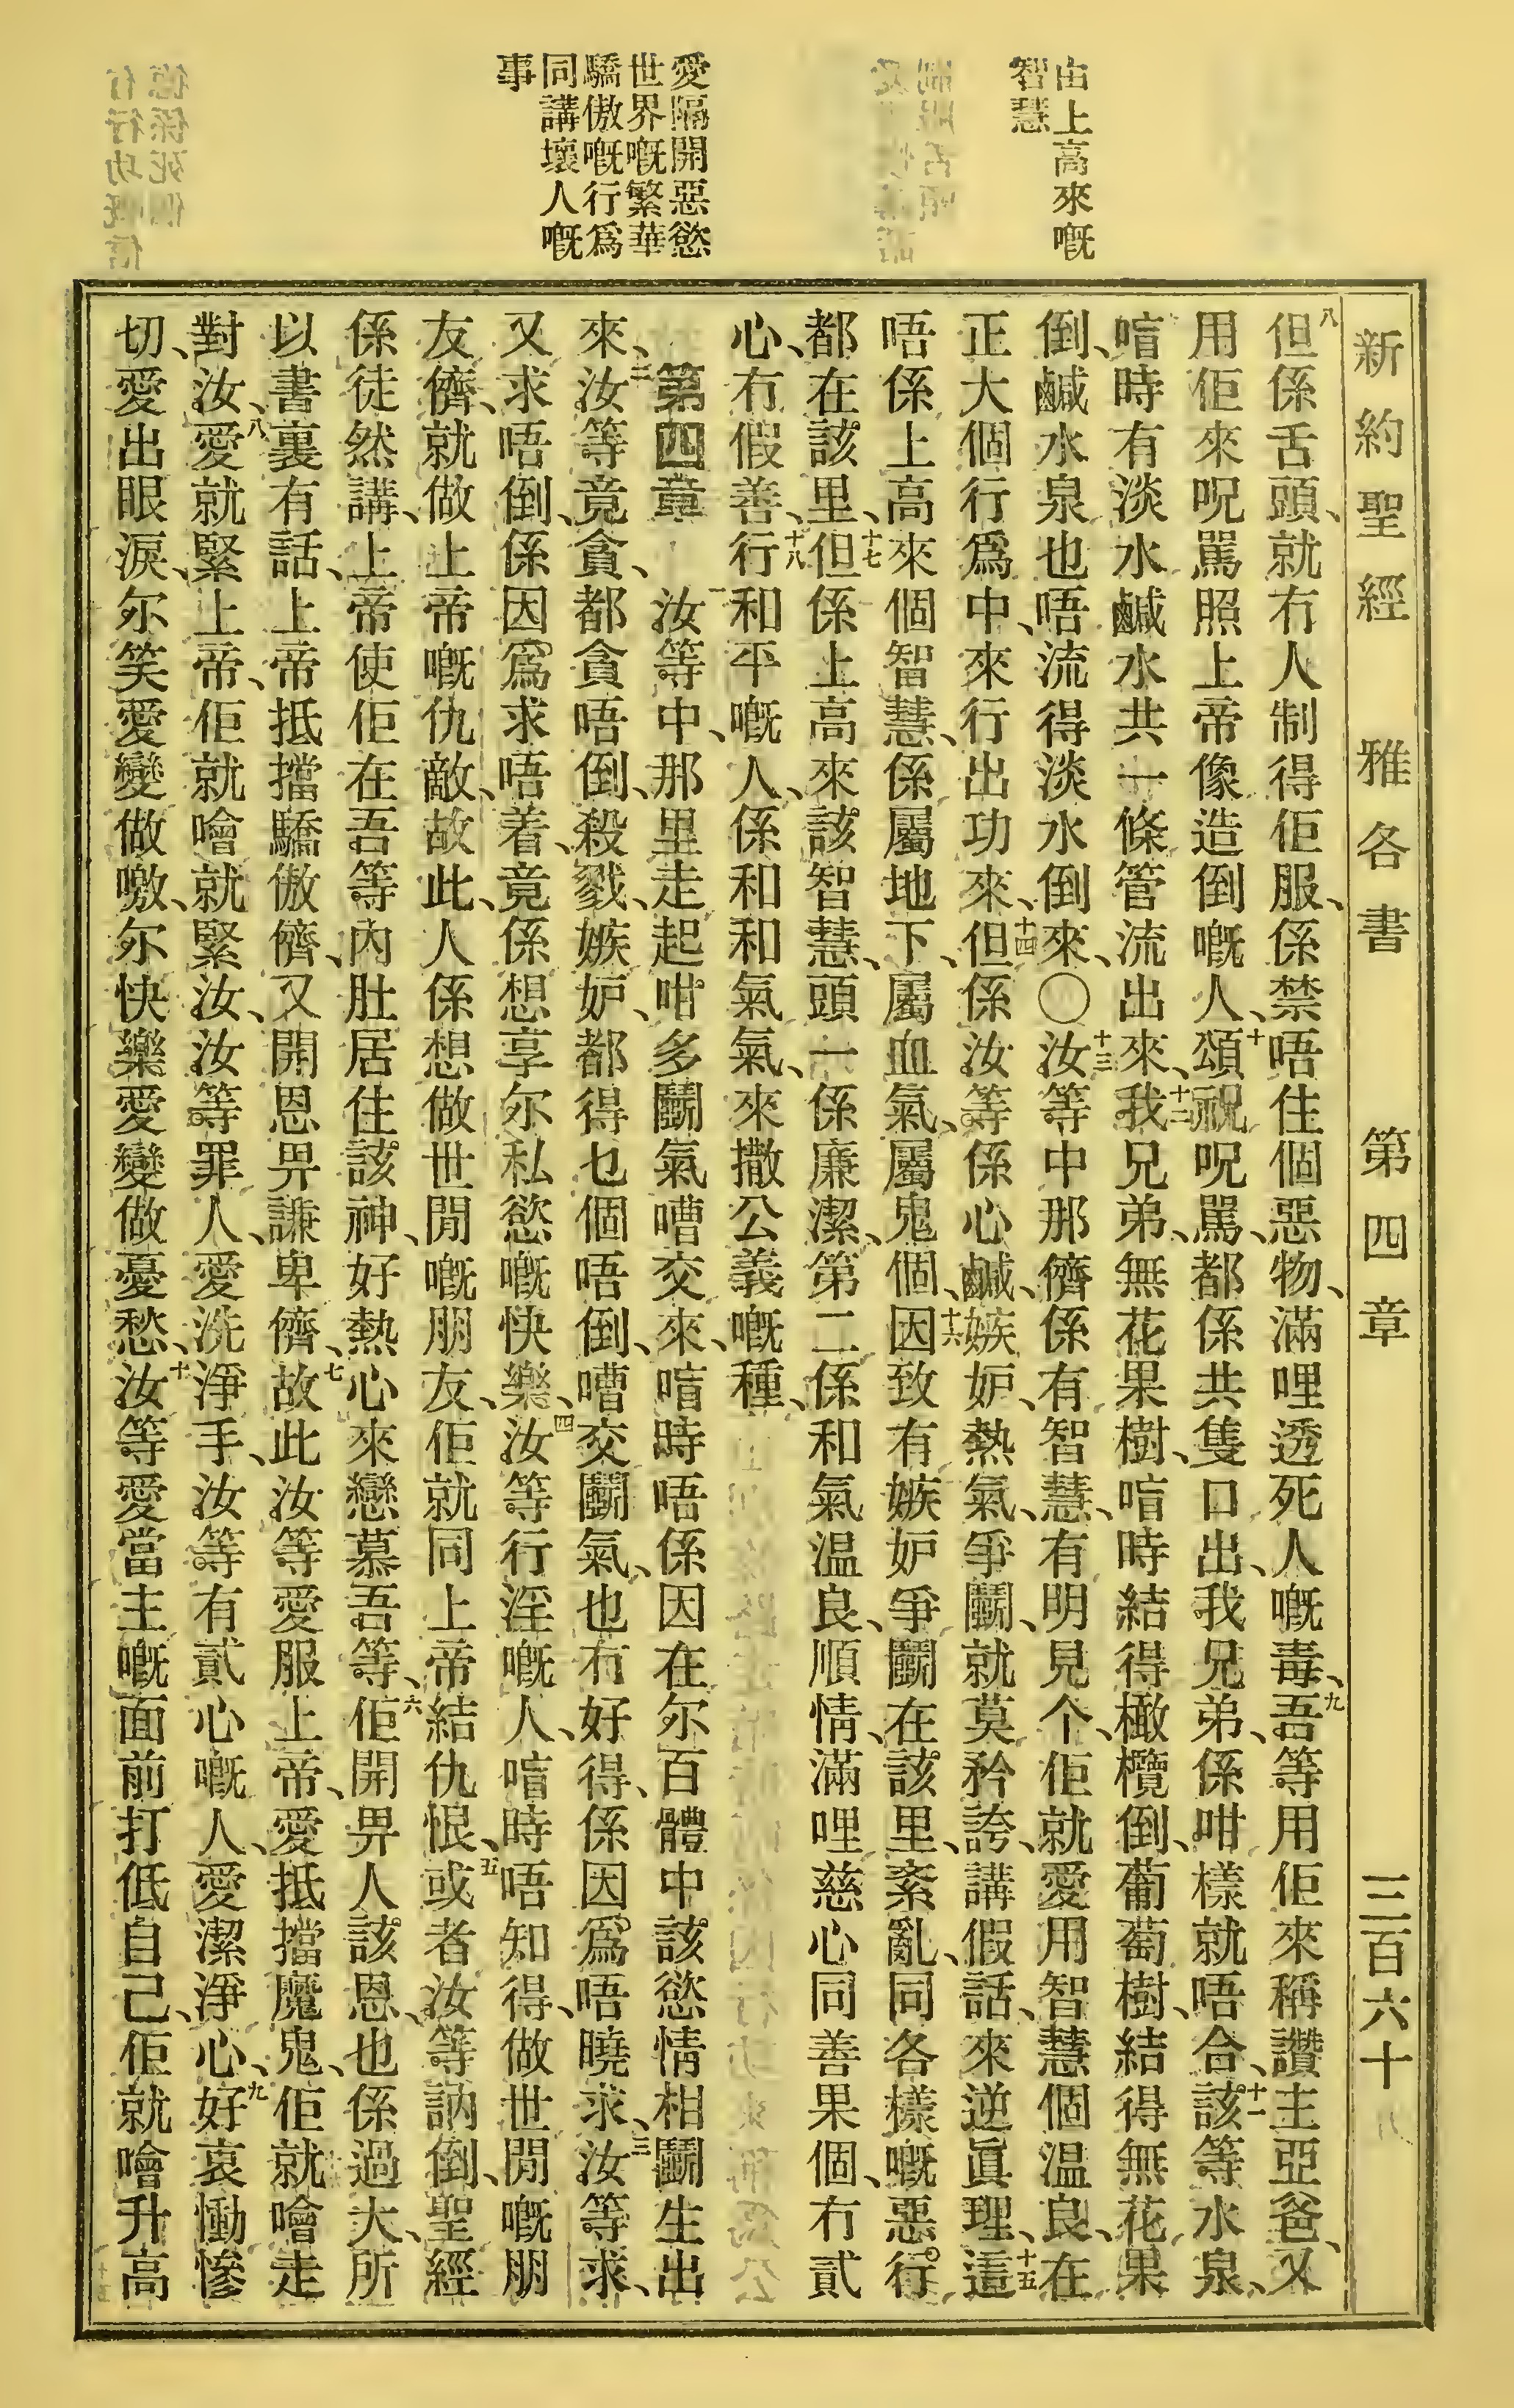 新約聖經　雅各書　第四章　三百六十八
由上高來嘅
智慧
愛隔開惡慾
世界嘅繁華
驕傲嘅行爲
同講壞人嘅
事
八但係舌頭、就冇人制得佢服、係禁唔住個惡物、滿哩透死人嘅毒、九吾等用佢來稱讚主亞爸、又
用佢來呪駡照上帝像造倒嘅人、十頌祝呪駡、都係共隻口出、我兄弟、係咁樣就唔合、十一該等水泉、
喑時有淡水鹹水共一條管流出來、十二我兄弟、無花果樹、喑時結得橄欖倒、葡萄樹、結得無花果
倒、鹹水泉也唔流得淡水倒來、〇十三汝等中那儕係有智慧、有明見个、佢就愛用智慧個温良、在
正大個行爲中、來行出功來、十四但係汝等係心鹹、嫉妒、熱氣、爭鬭、就莫矜誇、講假話、來逆眞理、十五這
唔係上高來個智慧、係屬地下、屬血氣、屬鬼個、十六因致有嫉妒爭鬭在該里、紊亂、同各樣嘅惡行
都在該里、十七但係上高來該智慧、頭一係廉潔、第二係和氣温良、順情、滿哩慈心同善果個、冇貳
心、冇假善、十八行和平嘅人、係和和氣氣、來撒公義嘅種、
第四章　一汝等中、那里走起咁多鬭氣嘈交來、喑時唔係因在尔百體中該慾情相鬭生出
來、二汝等竟貪、都貪唔倒、殺戮、嫉妒、都得乜個唔倒、嘈交鬭氣、也冇好得、係因爲唔曉求、三汝等求、
又求唔倒、係因爲求唔着、竟係想享尔私慾嘅快樂、四汝等行淫嘅人、喑時唔知得、做世間嘅朋
友儕、就做上帝嘅仇敵、故此、人係想做世間嘅朋友、佢就同上帝結仇恨、五或者汝等訥倒、聖經
係徒然講、上帝使佢在吾等內肚居住該神、好熱心來戀慕吾等、六佢開畀人該恩、也係過大、所
以書裏有話、上帝抵擋驕傲儕、又開恩畀謙卑儕、七故此汝等愛服上帝、愛抵擋魔鬼、佢就噲走
對汝、八愛就緊上帝、佢就噲就緊汝、汝等罪人、愛洗淨手、汝等有貳心嘅人、愛潔淨心、九好哀慟慘
切、愛出眼淚、尔笑愛變做嗷、尔快樂愛變做憂愁、十汝等愛當主嘅面前打低自己、佢就噲升高